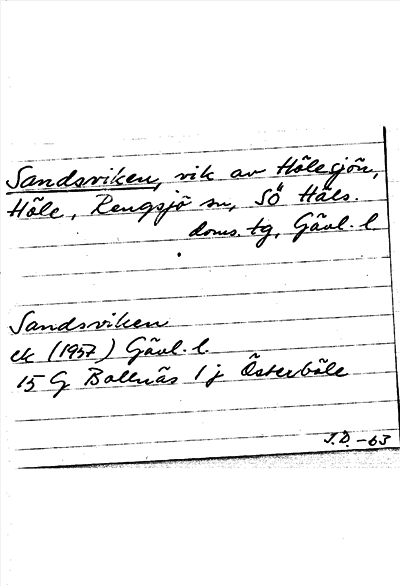 Sandsviken, vik av Hölesjön,
Höle, Rengsjö sn, SÖ Häls.
doms. tg, Gävl. l
Sandsviken
ek (1957) Gävl. l.
15 G Bollnäs 1 j Österböle
J.D. -63